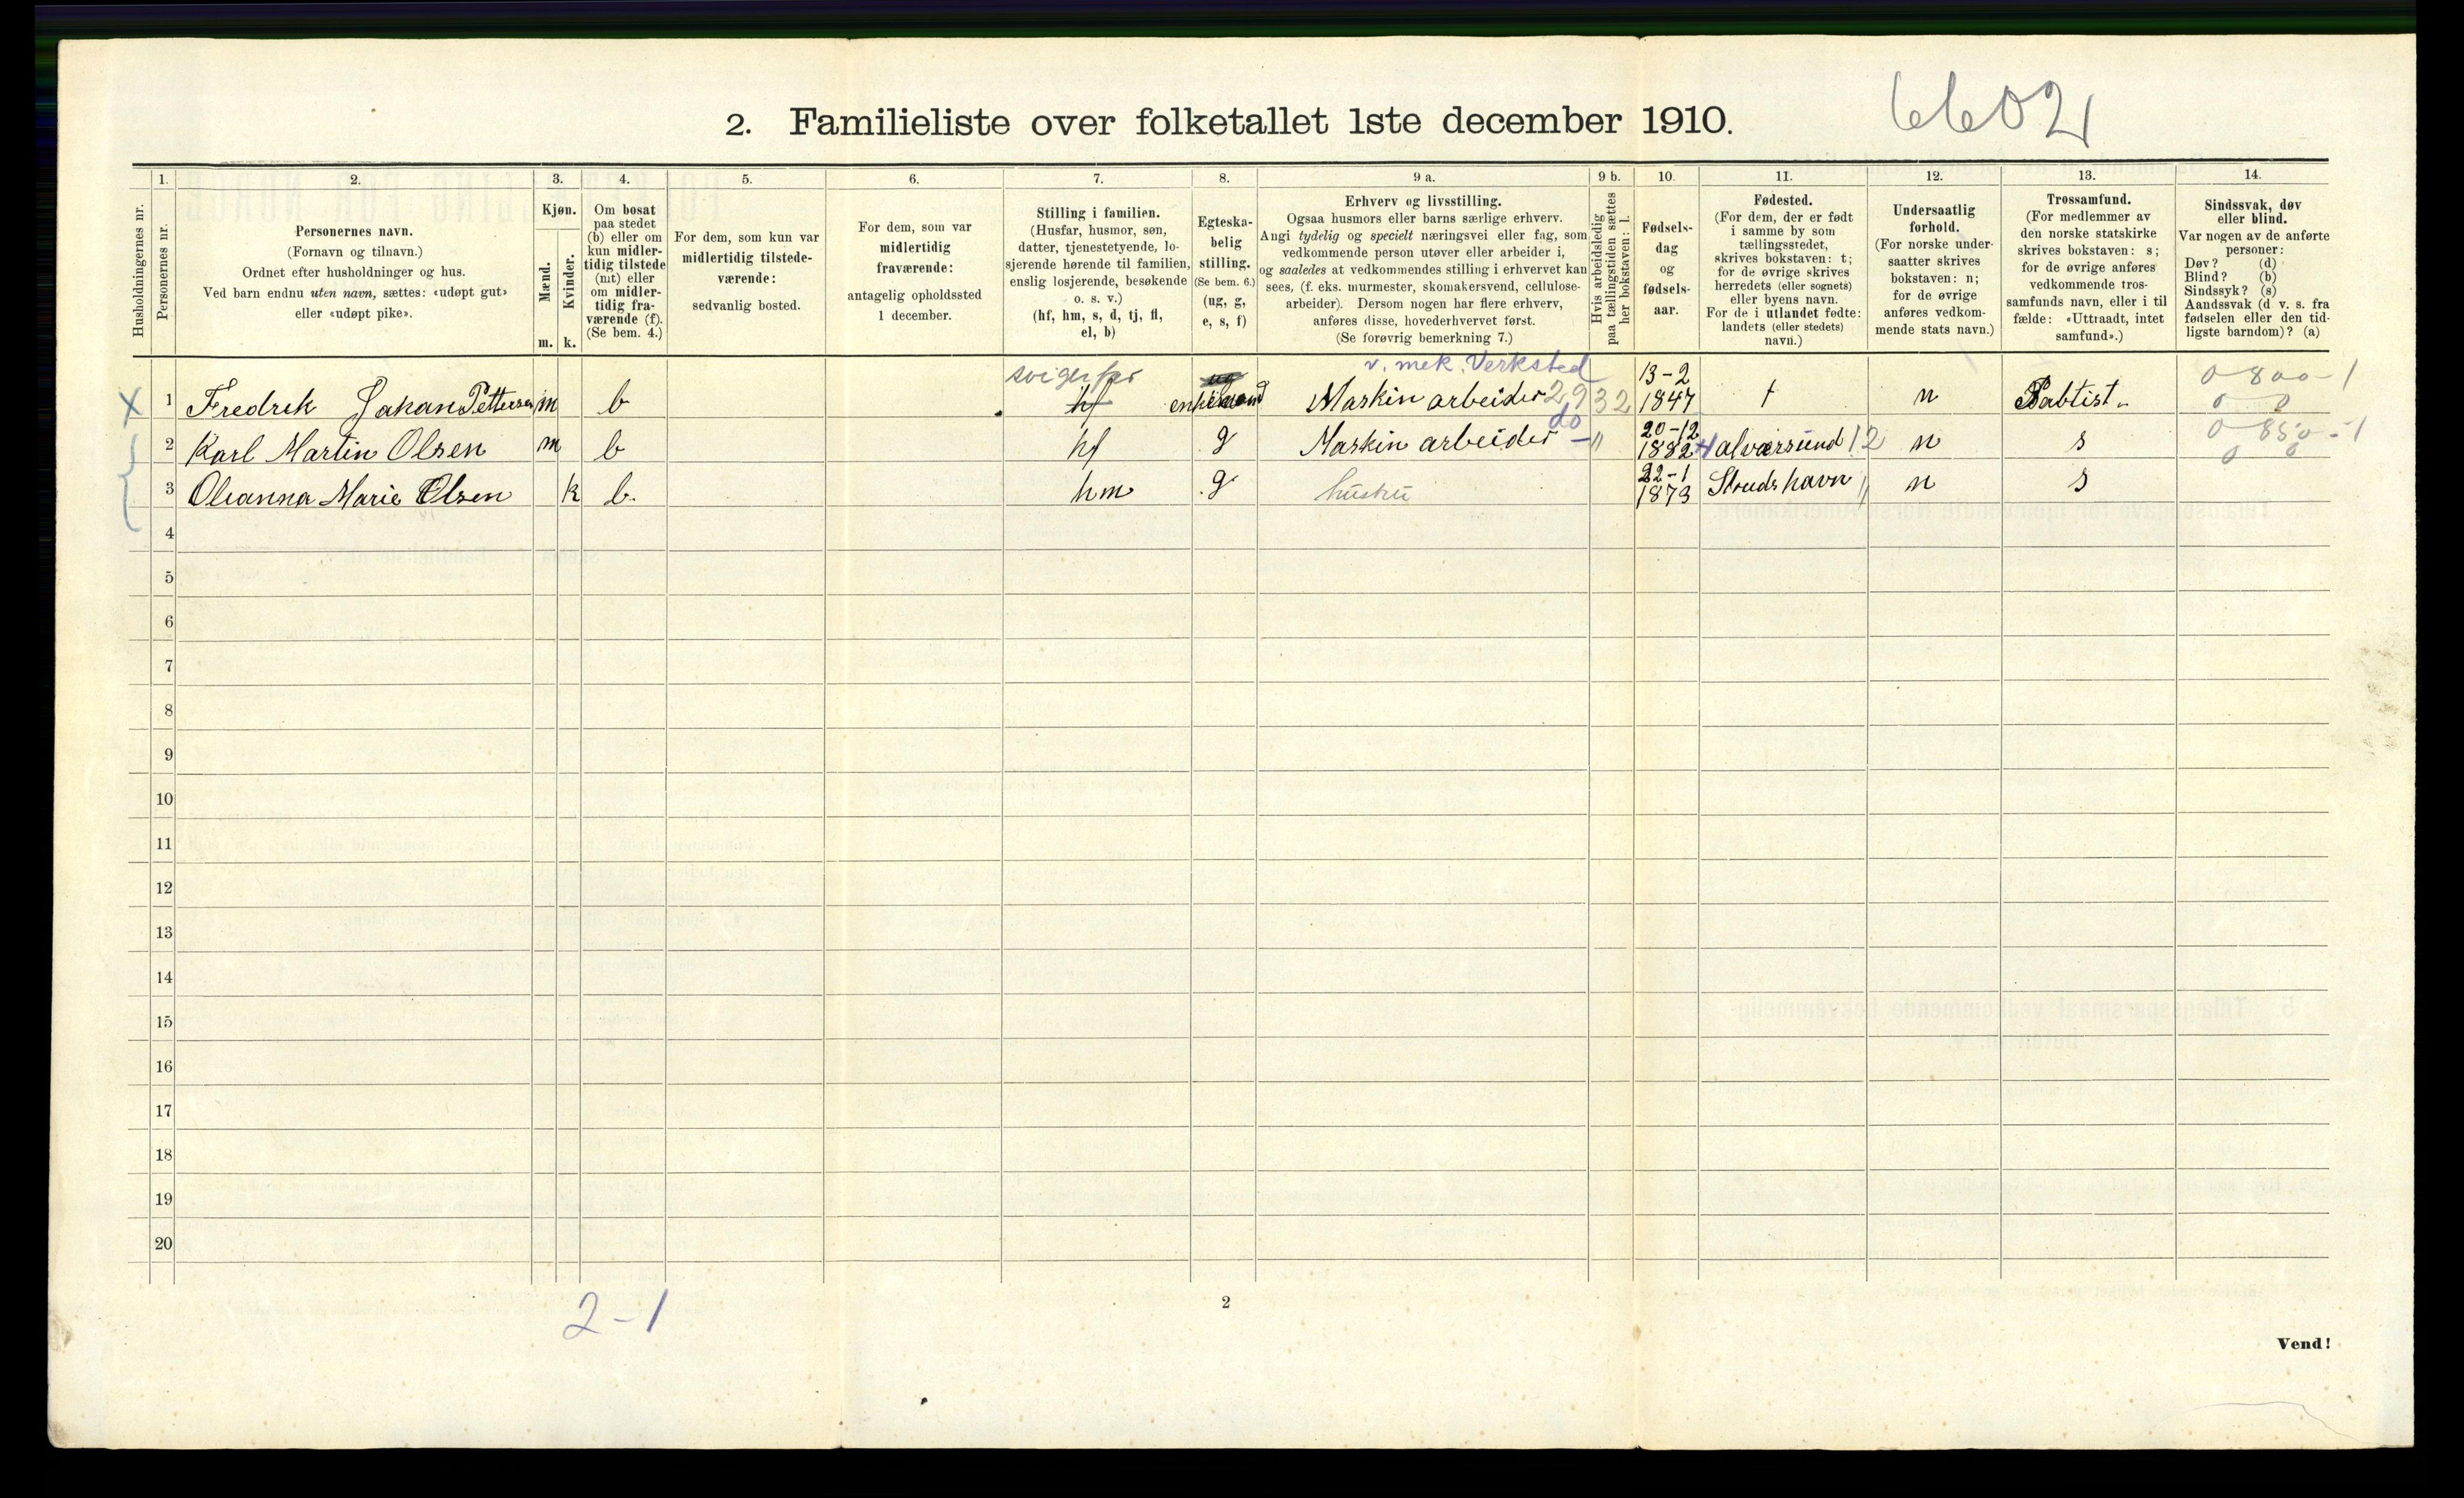 6602
2. Familieliste over folketallet 1ste december 1910.
Husholdningernes nr.
1.
Personernes nr.
2.
Personernes navn.
(Fornavn og tilnavn.)
Ordnet efter husholdninger og hus.
Ved barn endnu uten navn, sættes: «udøpt gut»
eller «udøpt pike».
3.
Kjøn.
Mænd.
Kvinder.
m. k.
4.
Om bosat
paa stedet
(b) eller om
kun midler-
tidig tilstede
(mt) eller
om midler-
tidig fra-
værende (f).
(Se bem. 4.)
5.
For dem, som kun var
midlertidig tilstede-
værende:
sedvanlig bosted.
6.
For dem, som var
midlertidig
fraværende:
antagelig opholdssted
1 december.
7.
Stilling i familien.
(Husfar, husmor, søn,
datter, tjenestetyende, lo-
sjerende hørende til familien,
enslig losjerende, besøkende
o. s. v.)
(hf, hm, s, d, tj, fl,
el, b)
8.
Egteska-
belig
stilling.
(Se bem. 6.)
(ug, g,
e, s, f)
9 a.
Erhverv og livsstilling.
Ogsaa husmors eller barns særlige erhverv.
Angi tydelig og specielt næringsvei eller fag, som
vedkommende person utøver eller arbeider i,
og saaledes at vedkommendes stilling i erhvervet kan
sees, (f. eks. murmester, skomakersvend, cellulose-
arbeider). Dersom nogen har flere erhverv,
anføres disse, hovederhvervet først.
(Se forøvrig bemerkning 7.)
9 b.
Hvis arbeidsledig
paa tællingstiden sættes
her bokstaven: l.
10.
Fødsels-
dag
og
fødsels-
aar.
11.
Fødested.
(For dem, der er født
i samme by som
tællingsstedet,
skrives bokstaven: t;
for de øvrige skrives
herredets (eller sognets)
eller byens navn.
For de i utlandet fødte:
landets (eller stedets)
navn.)
12.
Undersaatlig
forhold.
(For norske under-
saatter skrives
bokstaven: n;
for de øvrige
anføres vedkom-
mende stats navn.)
13.
Trossamfund.
(For medlemmer av
den norske statskirke
skrives bokstaven: s;
for de øvrige anføres
vedkommende tros-
samfunds navn, eller i til
fælde: «Uttraadt, intet
samfund».)
14.
Sindssvak, døv
eller blind.
Var nogen av de anførte
personer:
Døv? (d)
Blind? (b)
Sindssyk? (s)
Aandssvak (d v. s. fra
fødselen eller den tid-
ligste barndom)? (a)
svigerfar v. mek. Verksted 13-2 0-800-1
x 1 Fredrek Jakan Pettersen m b hf enkemand Maskin arbeider 2932 1847 t n Babtist 0 0
do 20-12 0-850-1
2 Karl Martin Olsen m b hf g Maskin arbeider -" 1882 alværsund 12 n s 0 0
22-1
3 Oleanna Marie Olsen k b. hm g hustru 1873 n s
4
5
6
7
8
9
10
11
12
13
14
15
16
17
18
19
20
2-1
2
Vend!